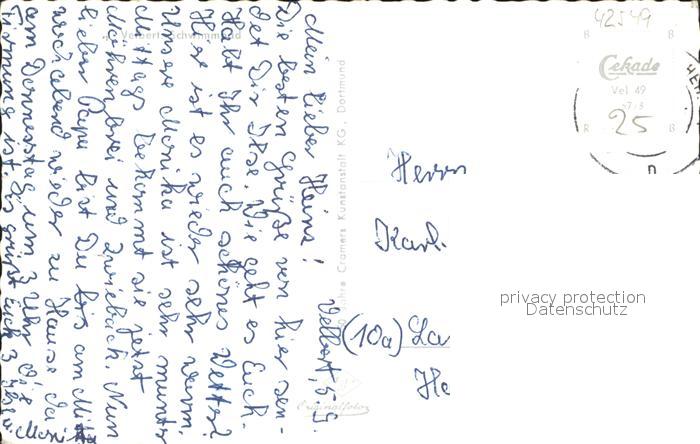 Velbert, 5.9.
Mein lieber Heins!
Die besten Grüße von hier sen-
det Dir Ilse. Wie geht es Euch.
Habt Ihr auch schönes Wetter?
Hier ist es wieder sehr warm.
Unsere Monika ist sehr munter
Mittags bekommt sie jetzt
Möhrenbrei und Zwieback. Nun
lieber Papa bist Du bis am Mitt-
wochabend wieder zu Hause, da
am Donnerstag um 3 Uhr die
Firmung ist. Es grüßt Euch 3 Ilse
u. Moni
Velbert, Schwimmbad
Jahre Cramers Kunstanstalt KG., Dortmund
Originalfoto
42549
Cekade
Vel 49
25
Herrn
Karl.
(10a) La
He
privacy protection
Datenschutz